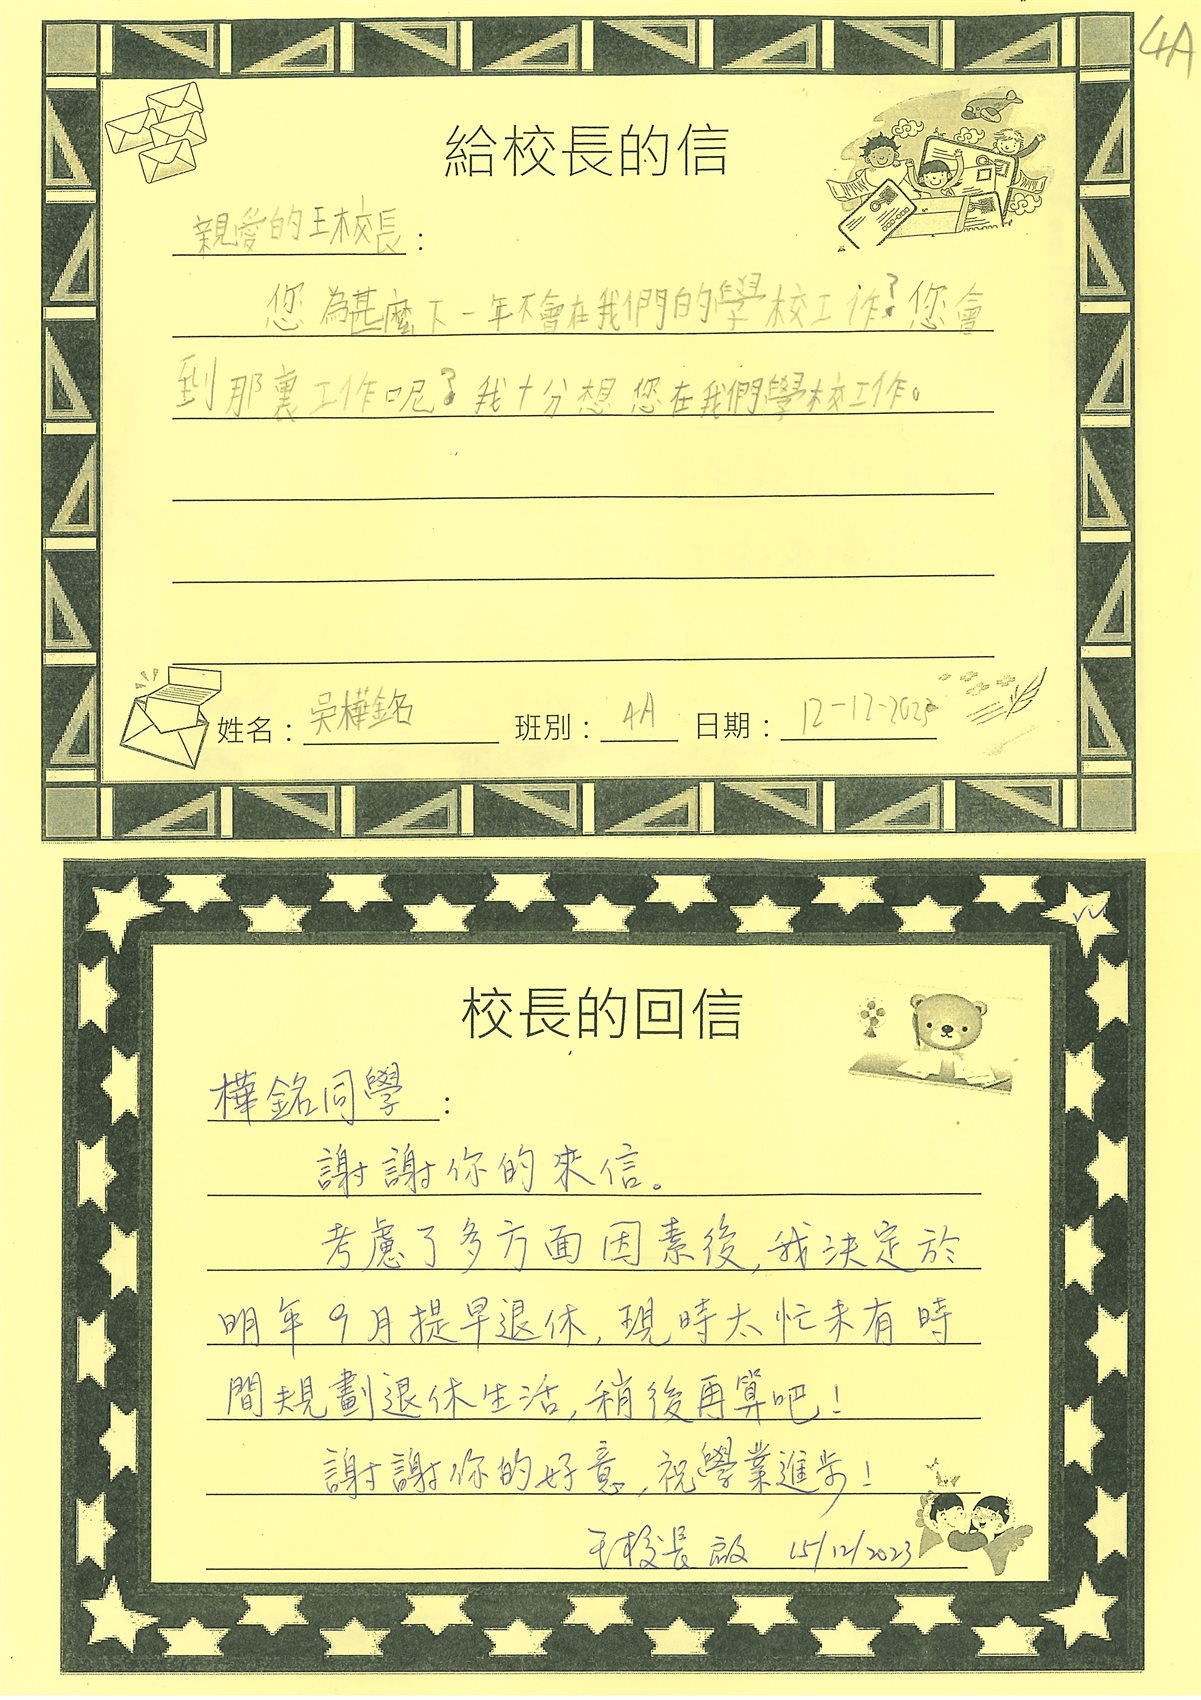 4A
給校長的信
親愛的王校長：
您為甚麼下一年不會在我們的學校工作?您會
到那裏工作呢?我十分想您在我們學校工作。
姓名：吳樺銘 班別：4A 日期：12-12-2023
校長的回信
樺銘同學：
謝謝你的來信。
考慮了多方面因素後,我決定於
明年9月提早退休,現時太忙未有時
間規劃退休生活,稍後再算吧!
謝謝你的好意,祝學業進步!
王校長啟 15/12/2023